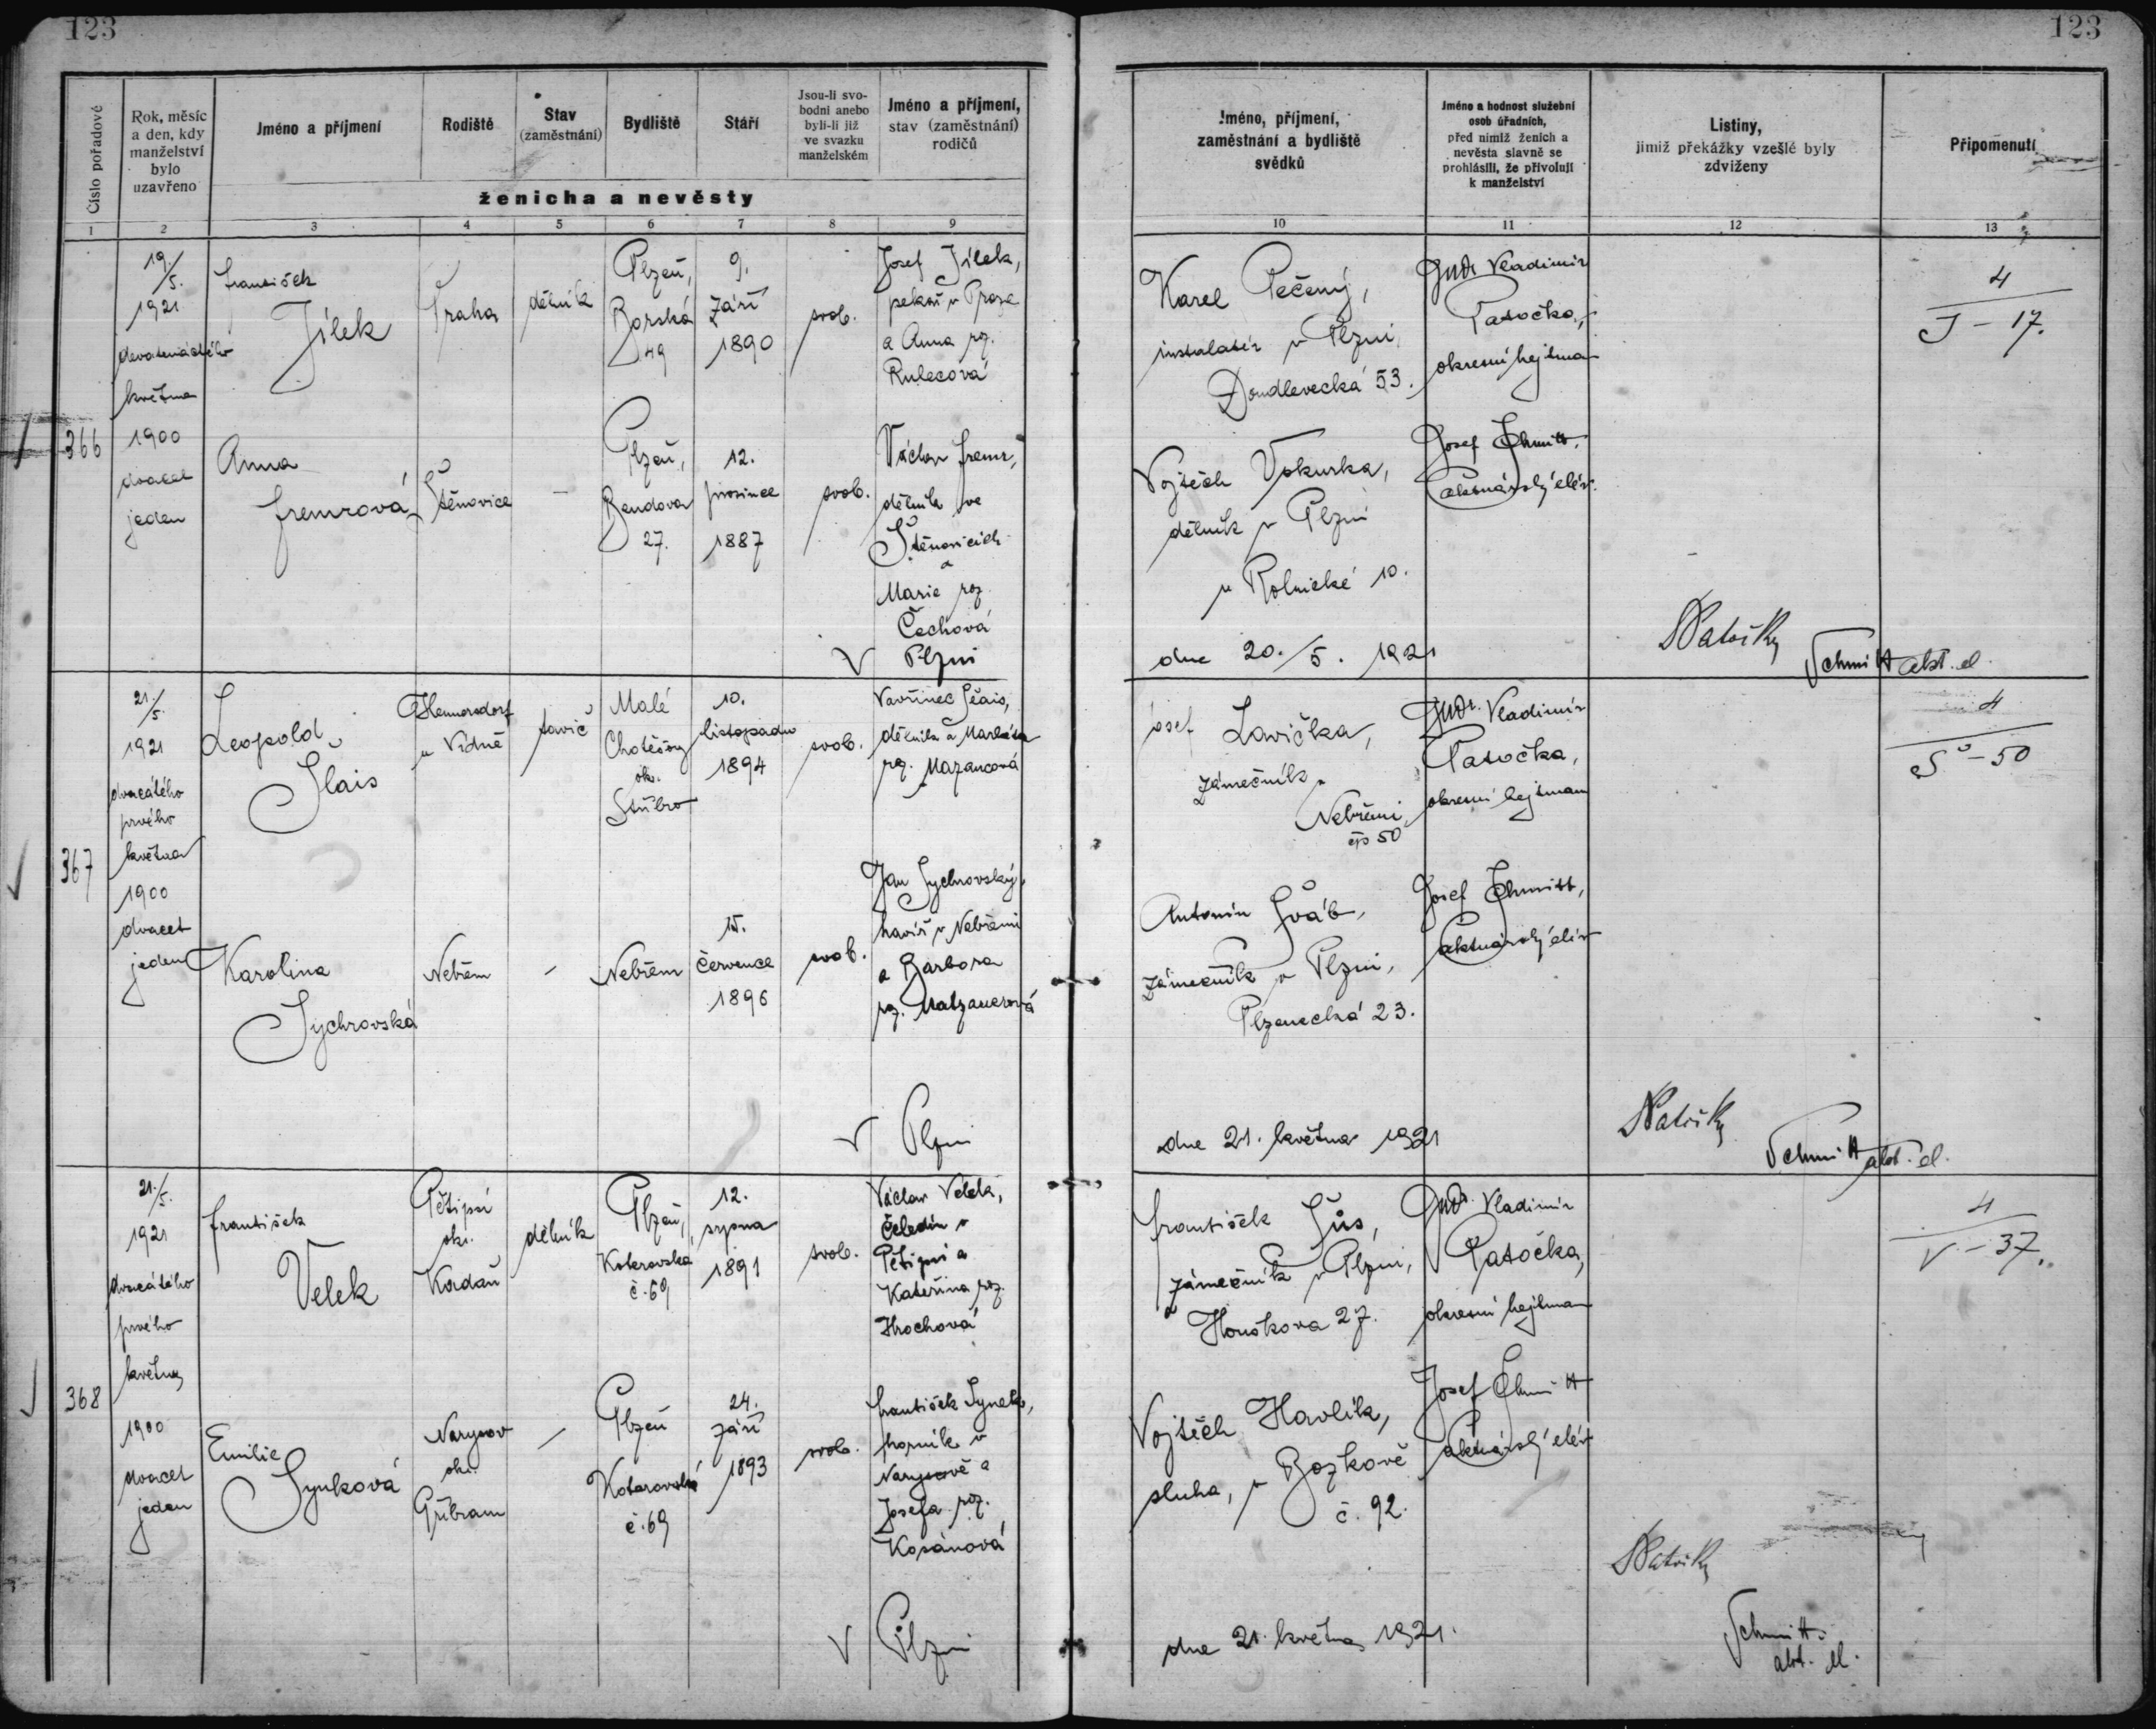 123
123
Číslo pořadové
Rok, měsíc
a den, kdy
manželství
bylo
uzavřeno
Jméno a příjmení
Rodiště
Stav
(zaměstnání)
Bydliště
Stáří
Jsou-li svo-
bodni anebo
byli-li již
ve svazku
manželském
Jméno a příjmení,
stav (zaměstnání)
rodičů
ženicha a nevěsty
1
2
3
4
5
6
7
8
9
Jméno, příjmení,
zaměstnání a bydliště
svědků
Jméno a hodnost služební
osob úředních,
před nimiž ženich a
nevěsta slavně se
prohlásili, že přivolují
k manželství
Listiny,
jimiž překážky vzešlé byly
zdviženy
Připomenutí
10
11
12
13
366
19/5.
1921
devatenáctého
května
1900
dvacet
jeden
František
Jílek
Praha
dělník
Plzeň,
Borská
49
9.
září
1890
svob.
Josef Jílek,
pekař v Praze
a Anna roz.
Rulecová
Anna
Fremrová
Štěnovice
–
Plzeň,
Bendova
27.
12.
prosince
1887
svob.
Václav Fremr,
dělník ve
Štěnovicích
a
Marie roz.
Čechová
V Plzni
Karel Pečený,
instalatér v Plzni,
Doudlevecká 53.
Vojtěch Vokurka,
dělník v Plzni
v Rolnické 10.
dne 20./5. 1921
JUDr Vladimír
Patočka,
okresní hejtman
Josef Schmitt,
aktuárský elév.
Schmitt akt. el.
4
J – 17.
367
21/5.
1921
dvacátého
prvého
května
1900
dvacet
jeden
Leopold
Slais
Hennersdorf
u Vídně
tavič
Malé
Chotěšovy
ok.
Stříbro
10.
listopadu
1894
svob.
Vavřinec Slais,
dělník a Markéta
roz. Mazancová
Karolina
Sychrovská
Nebřem
–
Nebřem
15.
července
1896
svob.
Jan Sychrovský,
havíř v Nebřemi
a Barbora
roz.
V Plzni
Josef Lavička,
zámečník v
Nebřemi
čp 50
Antonín Šváb,
zámečník v Plzni,
Plzenecká 23.
dne 21. května 1921
JUDr. Vladimír
Patočka,
okresní hejtman
Josef Schmitt,
aktuárský elév
Schmitt akt. el.
4
S – 50
368
21./5.
1921
dvacátého
prvého
května
1900
dvacet
jeden
František
Velek
Pětipsí
okr.
Kadaň
dělník
Plzeň,
Koterovská
č. 69
12.
srpna
1891
svob.
Václav Velek,
čeledín v
Pětipsí a
Kateřina roz.
Hrochová
Emilie
Synková
Narysov
okr.
Příbram
–
Plzeň
Koterovská
č. 69
24.
září
1893
svob.
František Synek,
horník v
Narysově a
Josefa roz.
Kosánová
V Plzni
František Šůs,
zámečník v Plzni,
Houškova 27.
Vojtěch Havlík,
sluha, v Bozkově
č. 92.
dne 21. května 1921.
JUDr. Vladimír
Patočka,
okresní hejtman
Josef Schmitt
aktuárský elév
Schmitt
akt. el.
4
V – 37.